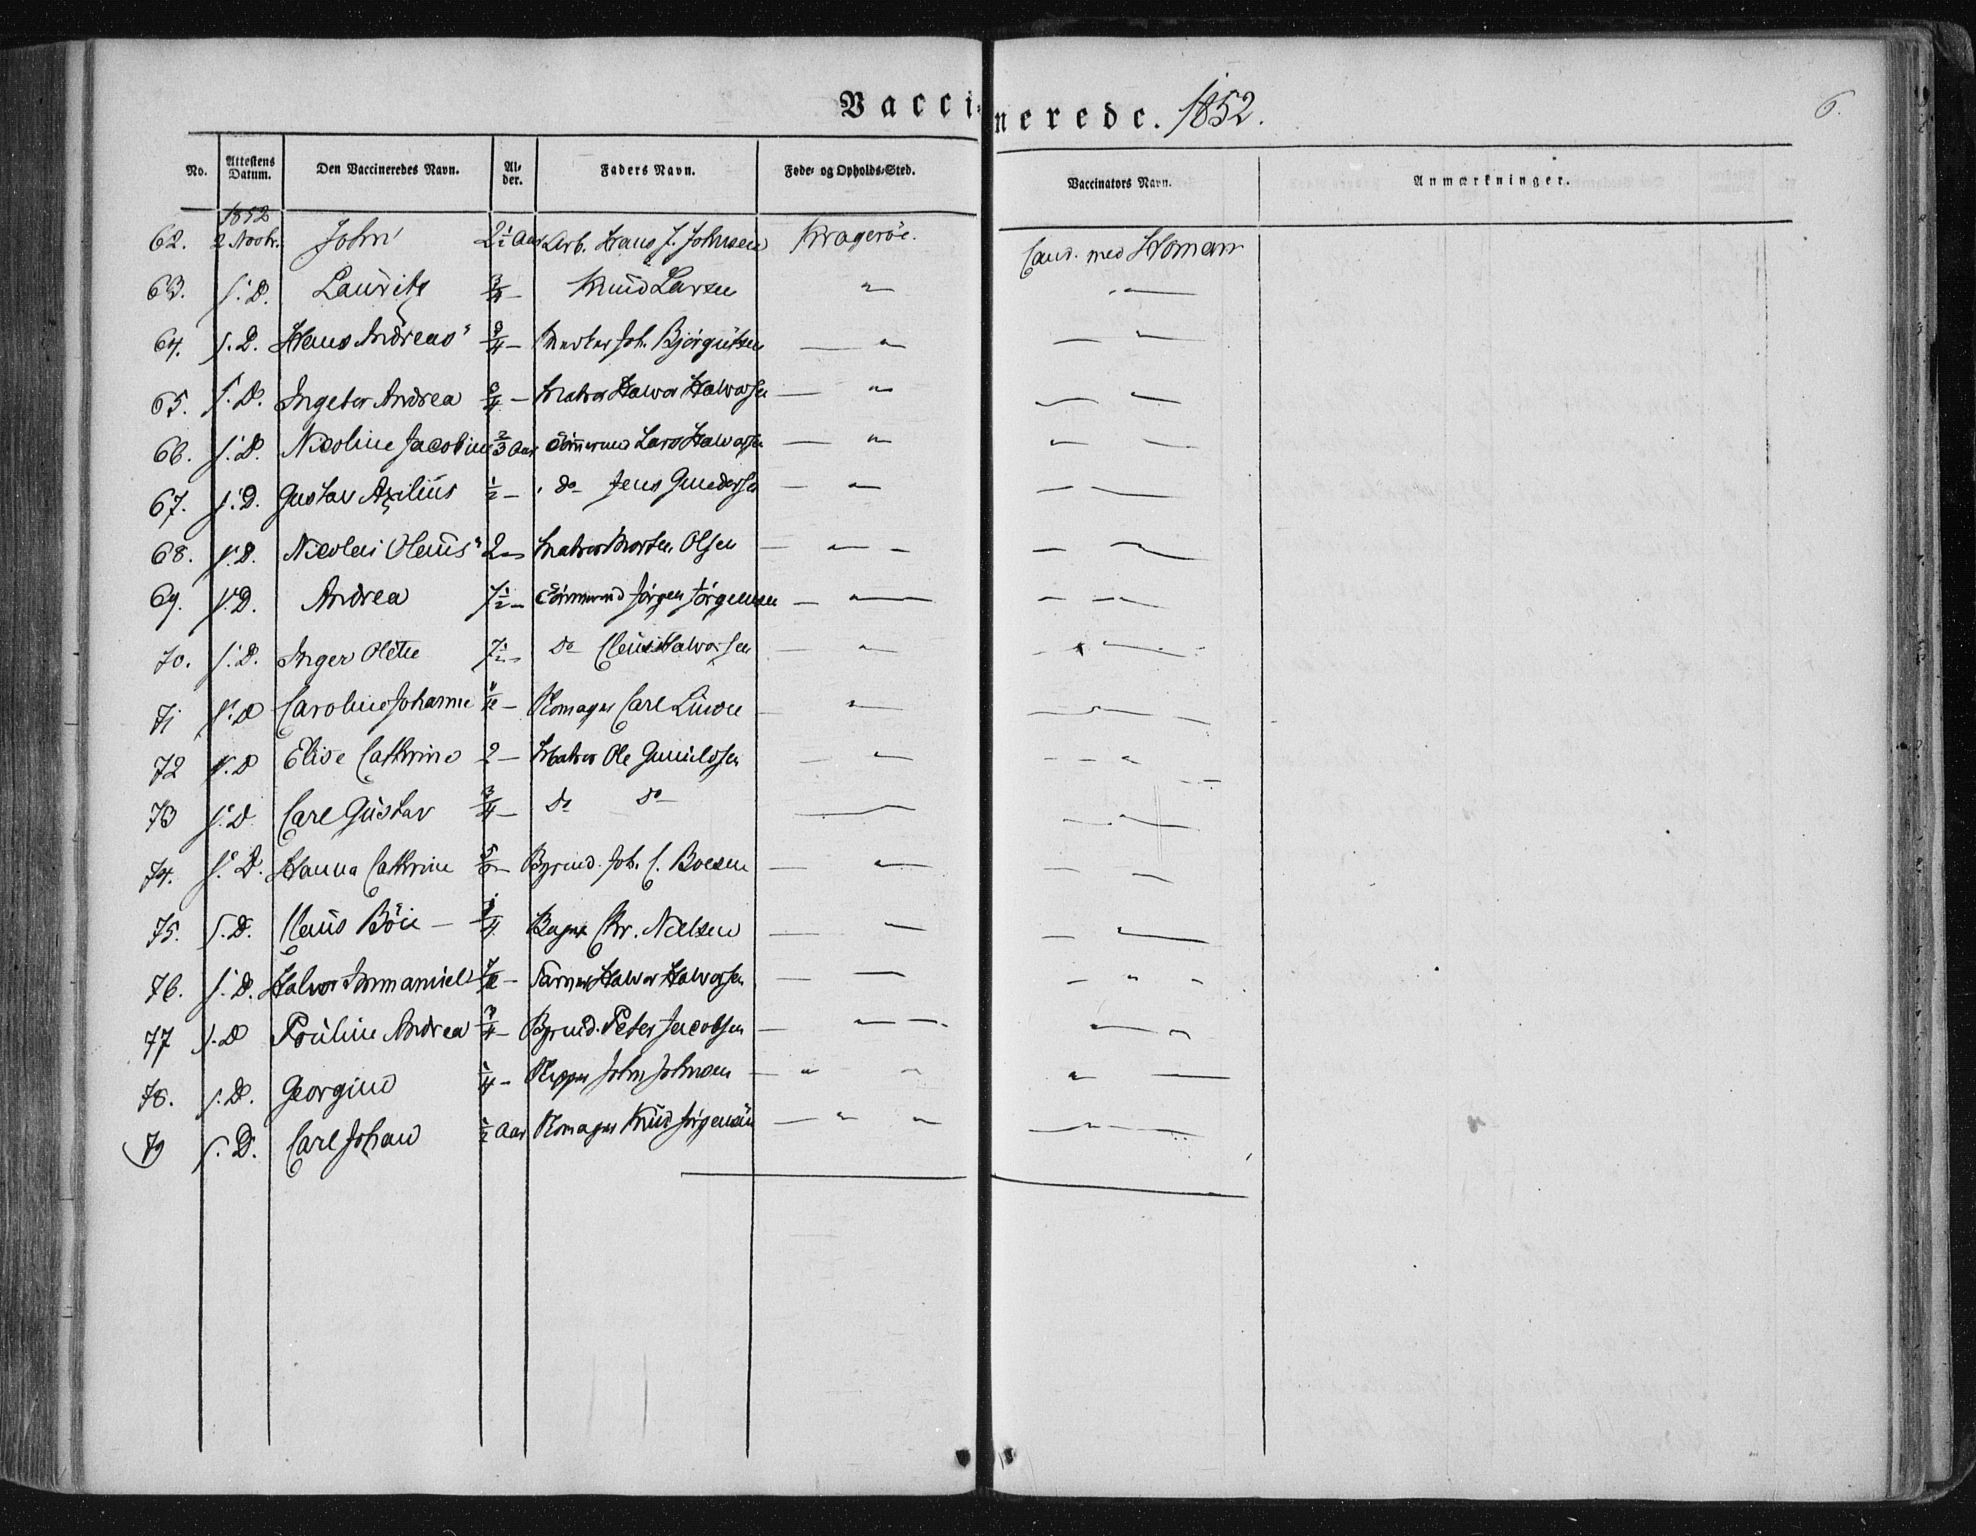 Vaccinerede. 1852.
6.
No. Attestens Datum. Den Vaccineredes Navn. Alder. Faders Navn. Føde- og Opholds-Sted. Vaccinators Navn. Anmærkninger.
1852
62. 2 Novbr. John 2½ Aar Arb. Hans J. Johnsen Krageröe. Cand. med Homan
63. s. D. Lauritz 3/4 — Knud Larsen " — " —
64. s. D. Hans Andreas 3/4 — Joh. Björgulsen — " — " —
65. s. D. Ingebor Andrea 3/4 — Matros Halvor Halvorsen — " — " —
66. s. D. Nicoline Jacobine 2/3 Aar Tömmermd Lars Halvorsen — " " —
67. s. D. Gustav Axilius ½ — do Jens Gundersen — " — " —
68. s. D. Nicolai Olaus 2 — Matros Morten Olsen — " — — " —
69. s. D. Andrea 7½ — Tömmermd Jörgen Jörgensen — " — — " —
70. s. D. Inger Oline 7½ — do Claus Halvorsen — " — " —
71 s. D Caroline Johanne — Klomager Carl — " — " —
72 s. D Elise Cathrine 2 — Matros Ole Gunuldsen — " — " —
73 s. D Carl Gustav 3/4 — do do — " —
74. s. D. Hanna Cathrine 5/6 — Bgrmd. Joh. C. Boesen — " — —
75. s. D. Claus Böie — 1/4 Bager Chr. Nielsen — " — " —
76. s. D. Halvor Immanuel — Garver Halvor Halvorsen — — — " —
77 s. D Pouline Andrea 3/4 — Bgrmd. Peter Jacobsen — " — " —
78. s. D. Georgine 1/4 — Skipper John Johnsen — " " " —
79 s. D. Carl Johan ½ Aar Klomager Knud Jörgensen — " " — " —